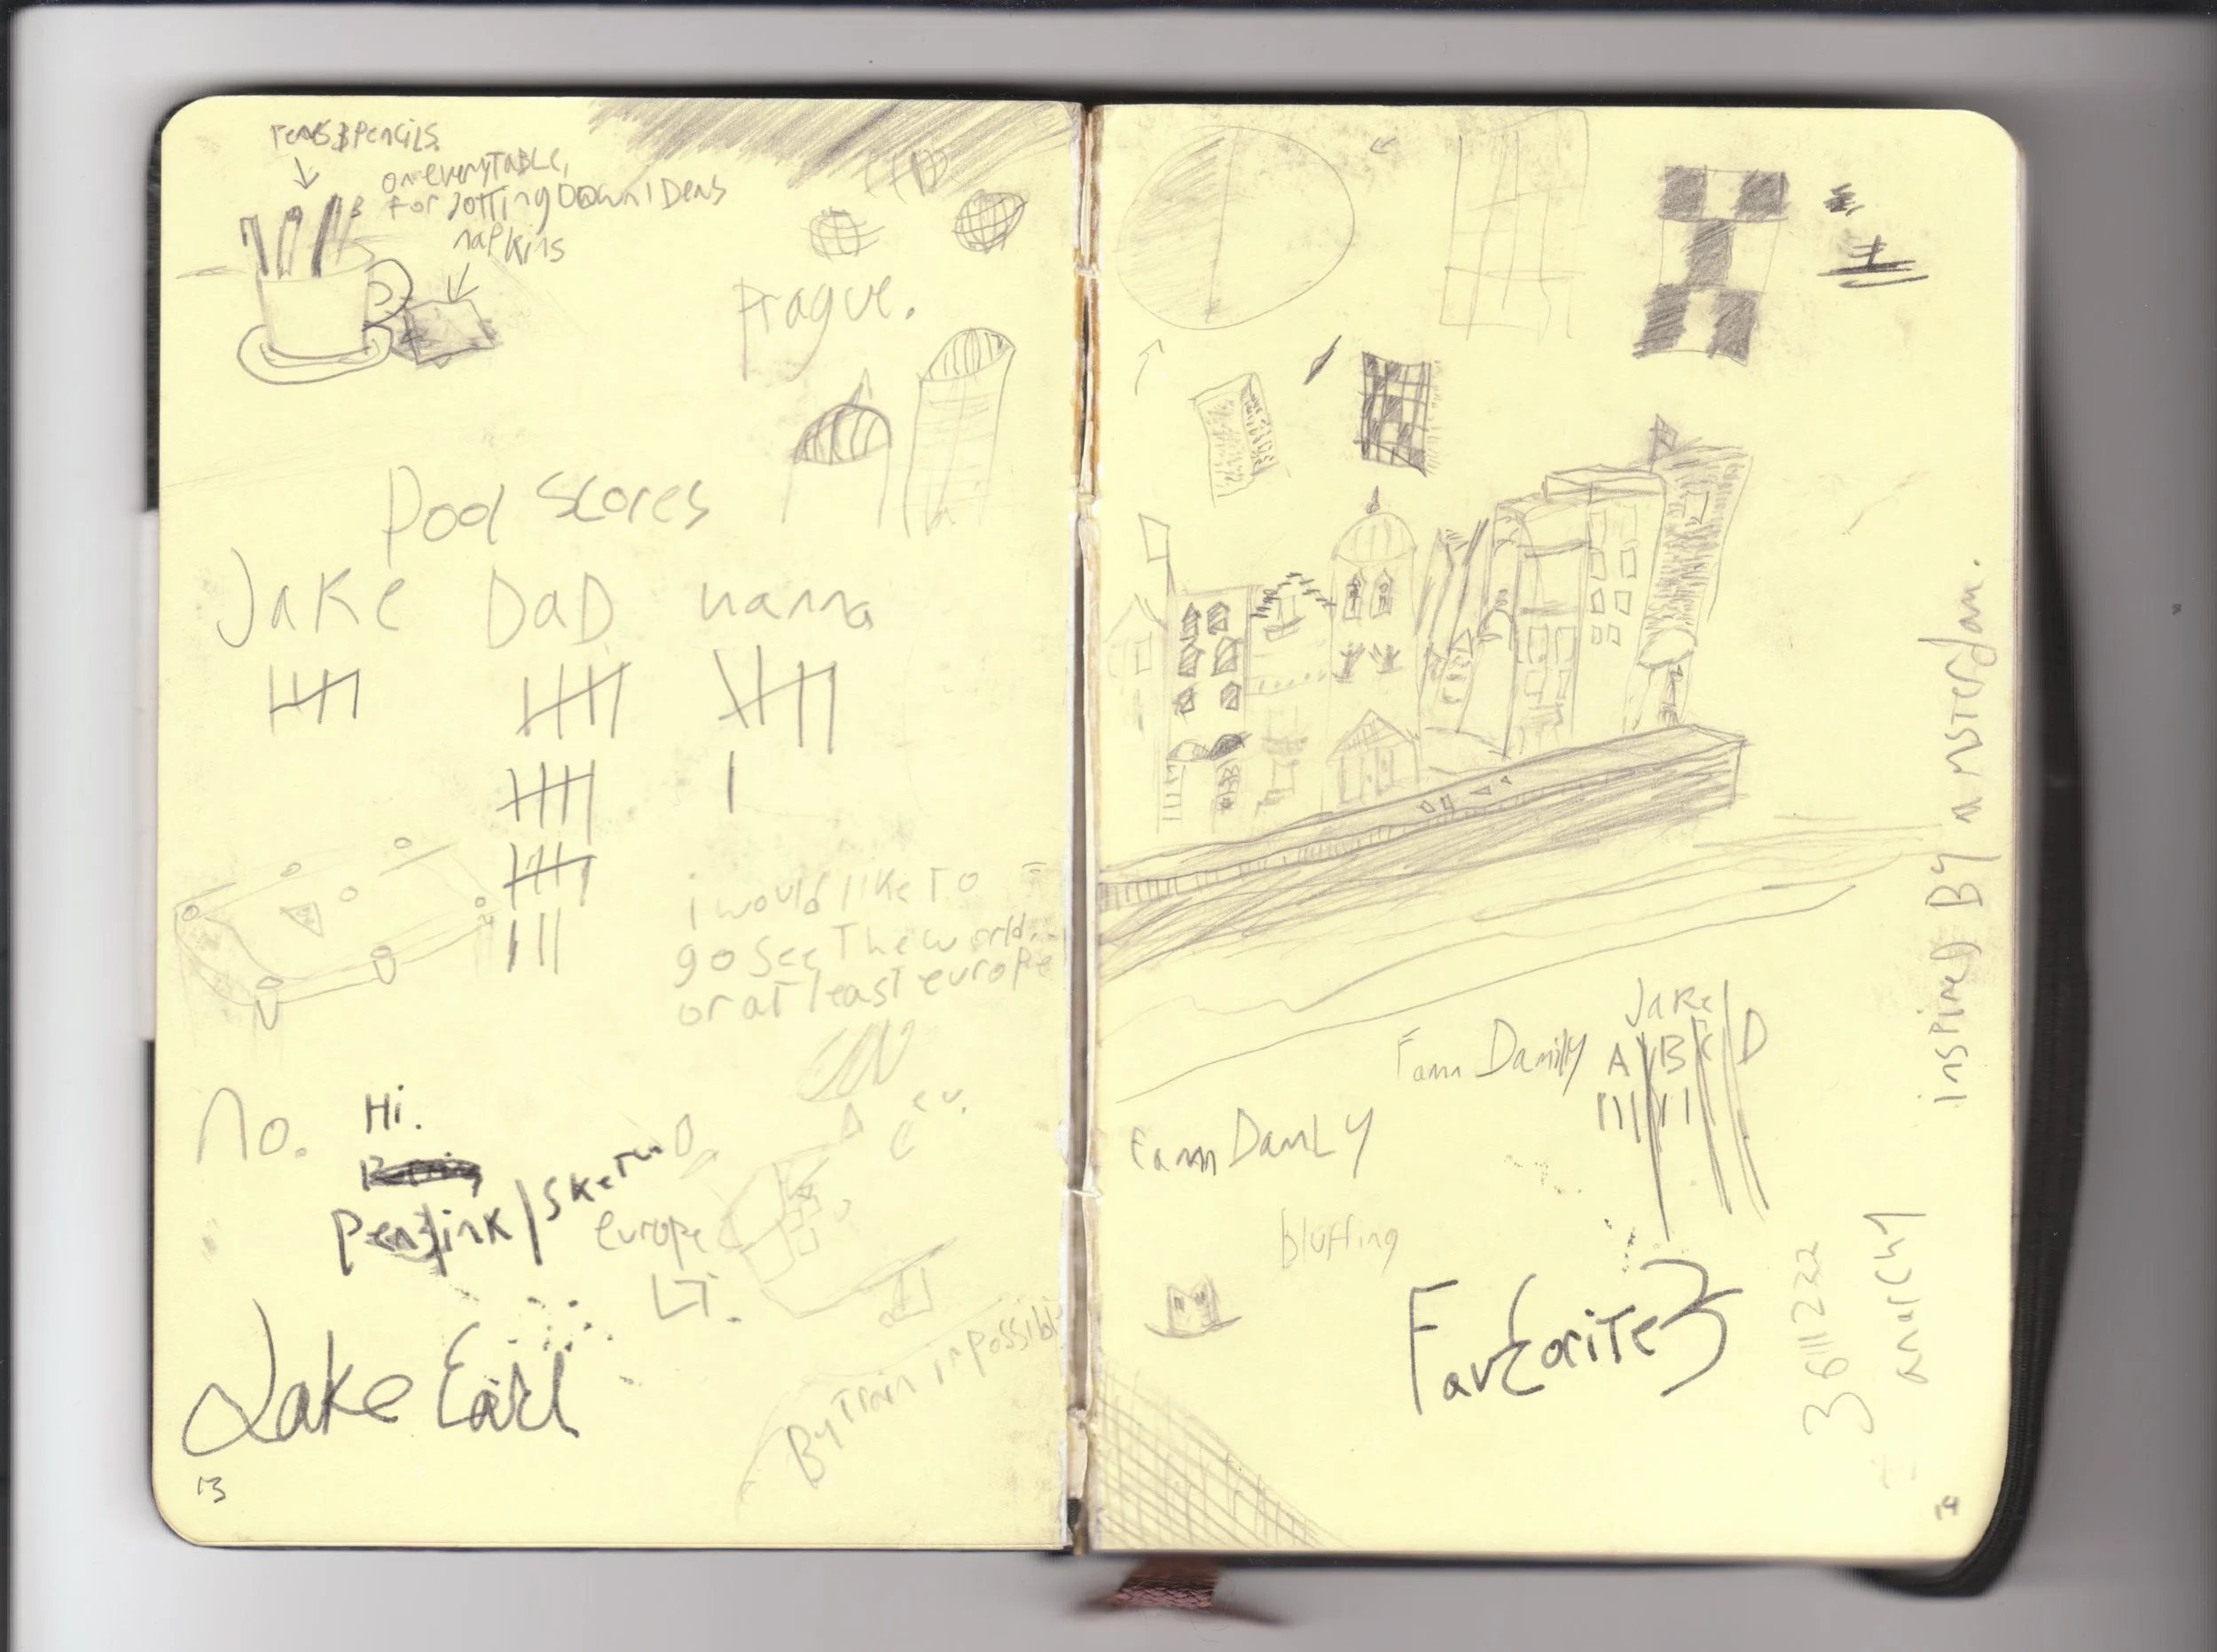 Pens & pencils.
on every TABLE,
for JOTTing DOwn IDeas
napkins
prague.
Pool scores
Jake DaD nanna
i would like To
go see The world...
or at least europe
no.
Hi.
Pen/ink/Sketch
europe
LT.
By Train impossible
Jake Earl
13
inspireD BY amsterdam.
Jake
Fann Damily A B C D
Fann DamLy
bluffing
Favorite 3
3611222
anarchy
14